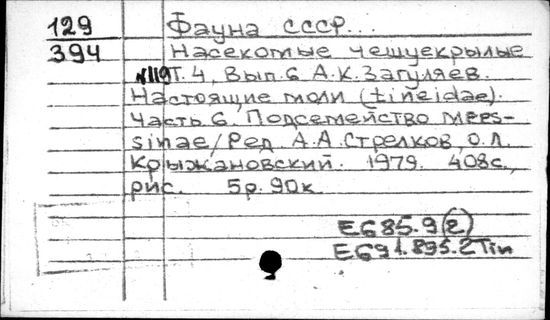 129 Фауна СССР...
394 Насекомые чешуекрылые
№119 Т. 4, Вып. 6 А.К. Загуляев.
Настоящие моли (tineidae).
Часть 6. Подсемейство mees-
sinae/Ред. А.А. Стрелков, О.Л.
Крыжановский. 1979. 408с.,
рис. 5р. 90к
Е685.9(2)
Е691.895.2Tin